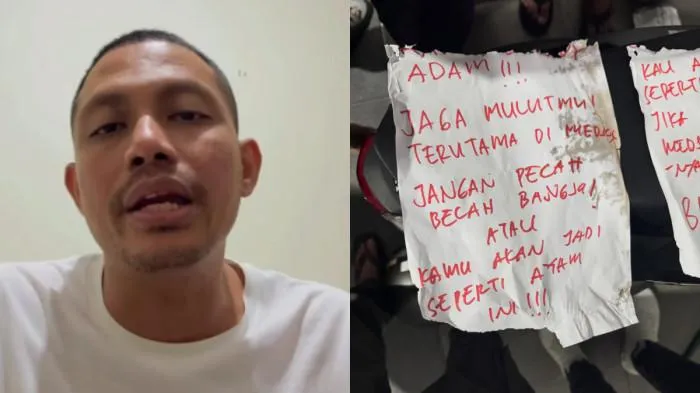 ADAM !!!
JAGA MULUTMU!
TERUTAMA DI
JANGAN PECAH
BECAH BANGSA!
ATAU
KAMU AKAN JADI
SEPERTI AYAM
INI!!!
KAU
SEPERTI
JIKA